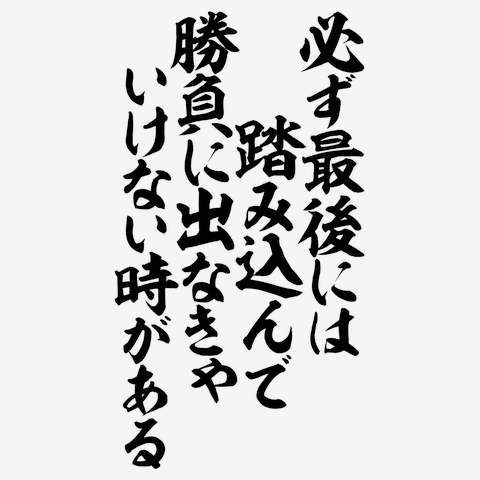 必ず最後には
踏み込んで
勝負に出なきゃ
いけない時がある